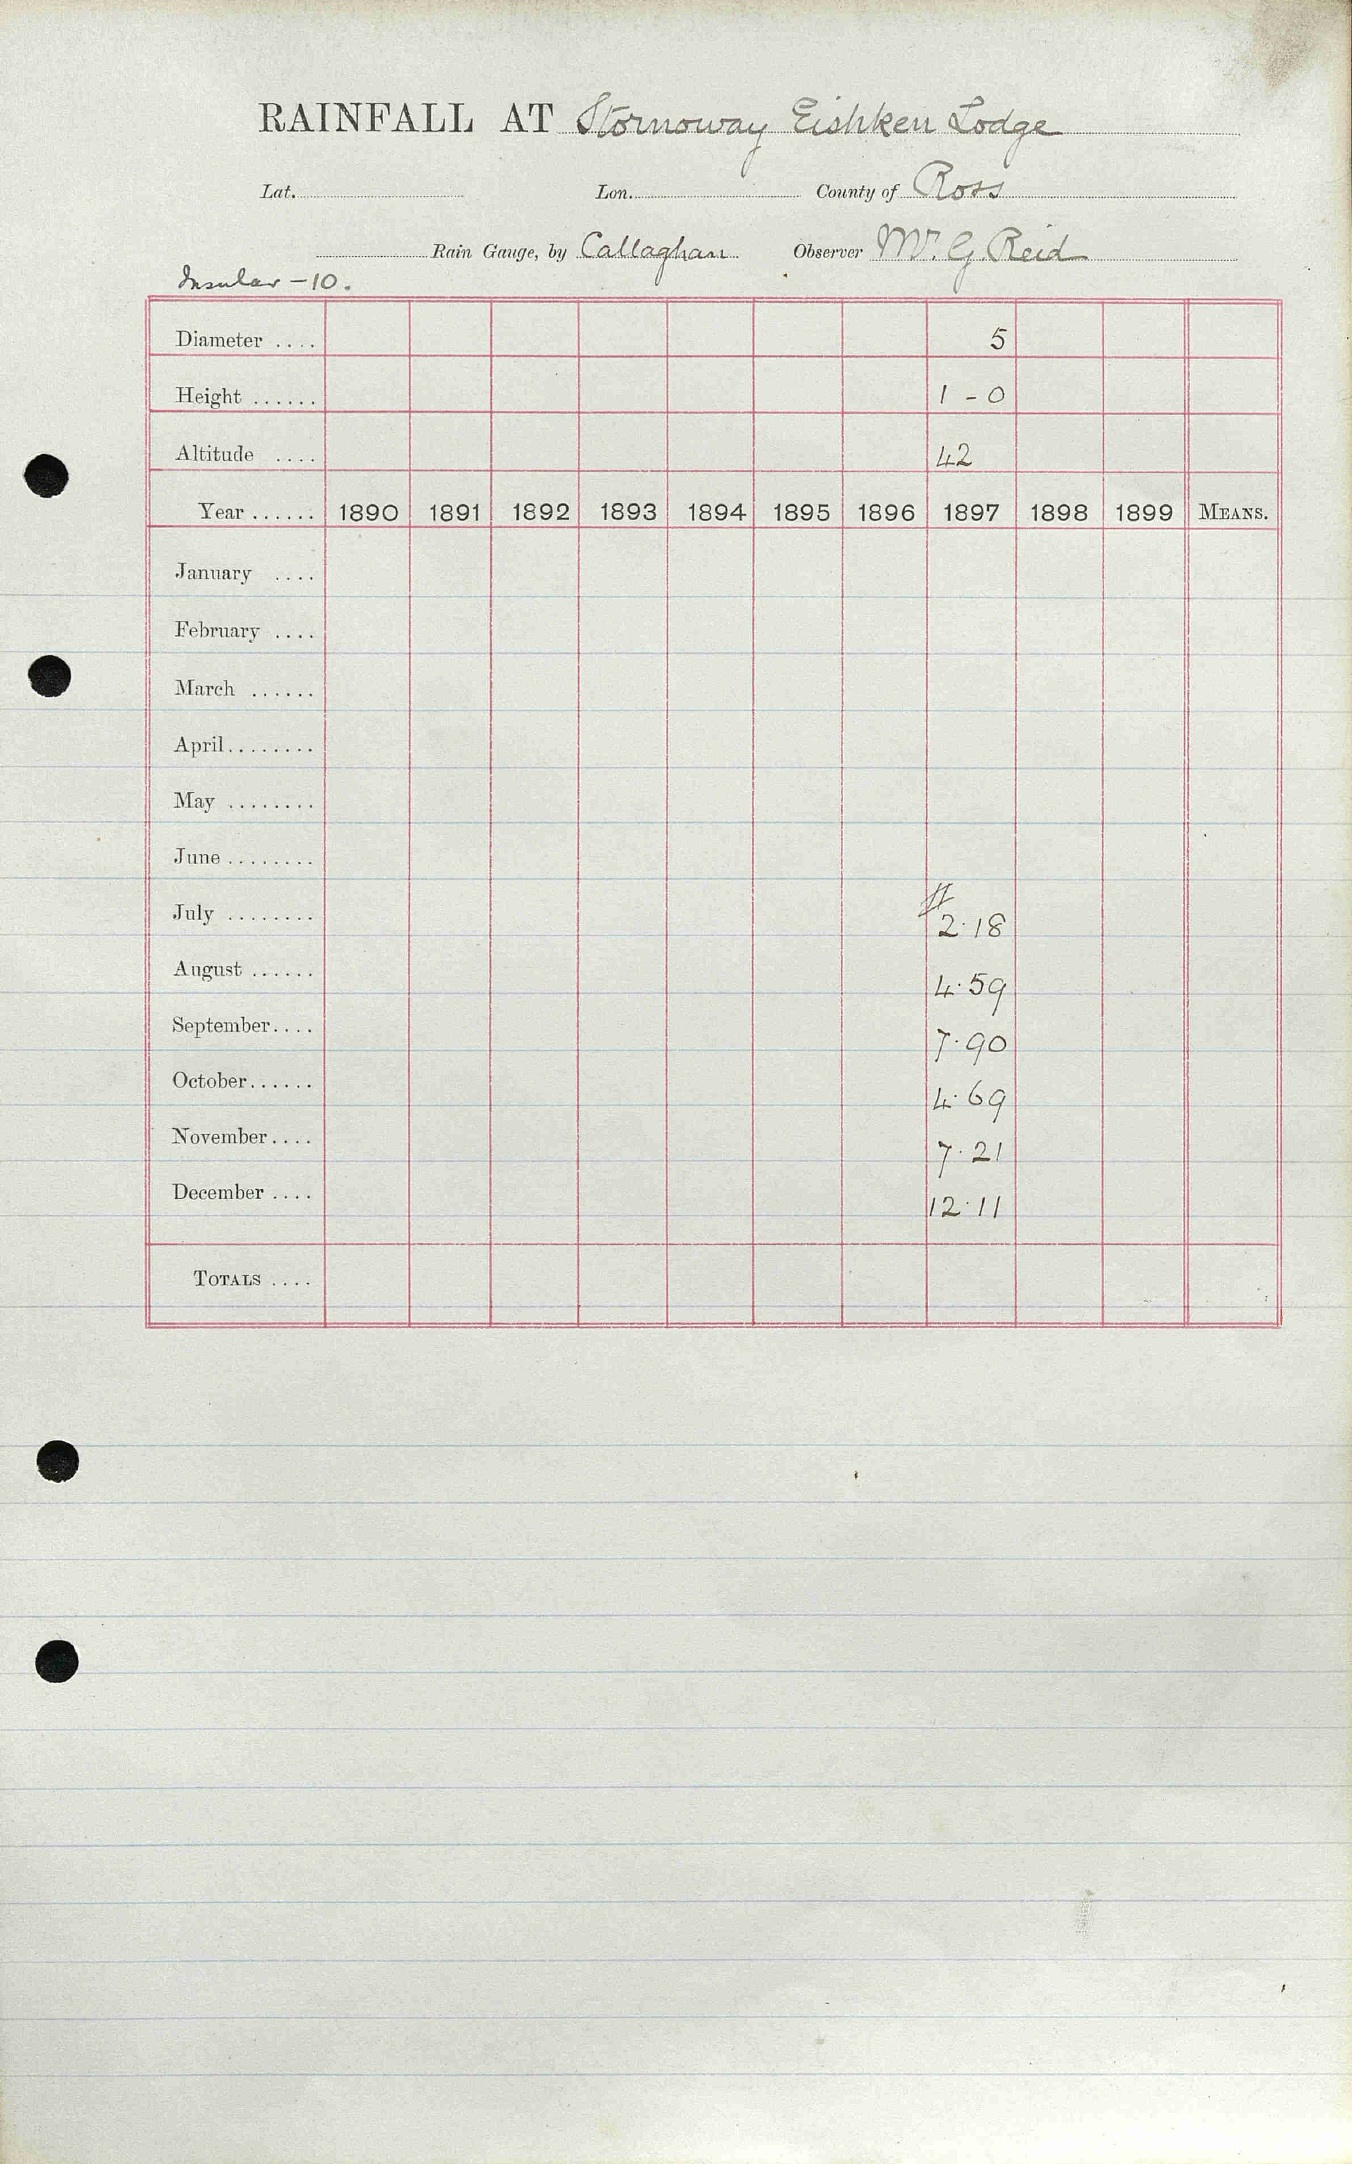 RAINFALL AT Stornoway Eishken Lodge
Lat. Lon. County of Ross
Rain Gauge, by Callaghan Observer Mr. G. Reid
Insular - 10.
Diameter .... 5
Height ...... 1 - 0
Altitude .... 42
Year ...... 1890 1891 1892 1893 1894 1895 1896 1897 1898 1899 MEANS.
January ....
February ....
March ......
April........
May ........
June ........
July ........ # 2.18
August ...... 4.59
September.... 7.90
October...... 4.69
November.... 7.21
December .... 12.11
TOTALS ....